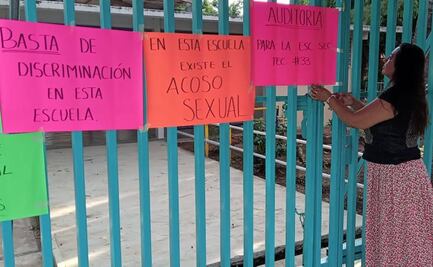 BASTA DE
DISCRIMINACIÓN
EN ESTA
ESCUELA.
EN ESTA ESCUELA
EXISTE EL
ACOSO
SEXUAL
AUDITORIA
PARA LA ESC. SEC.
TEC. #33